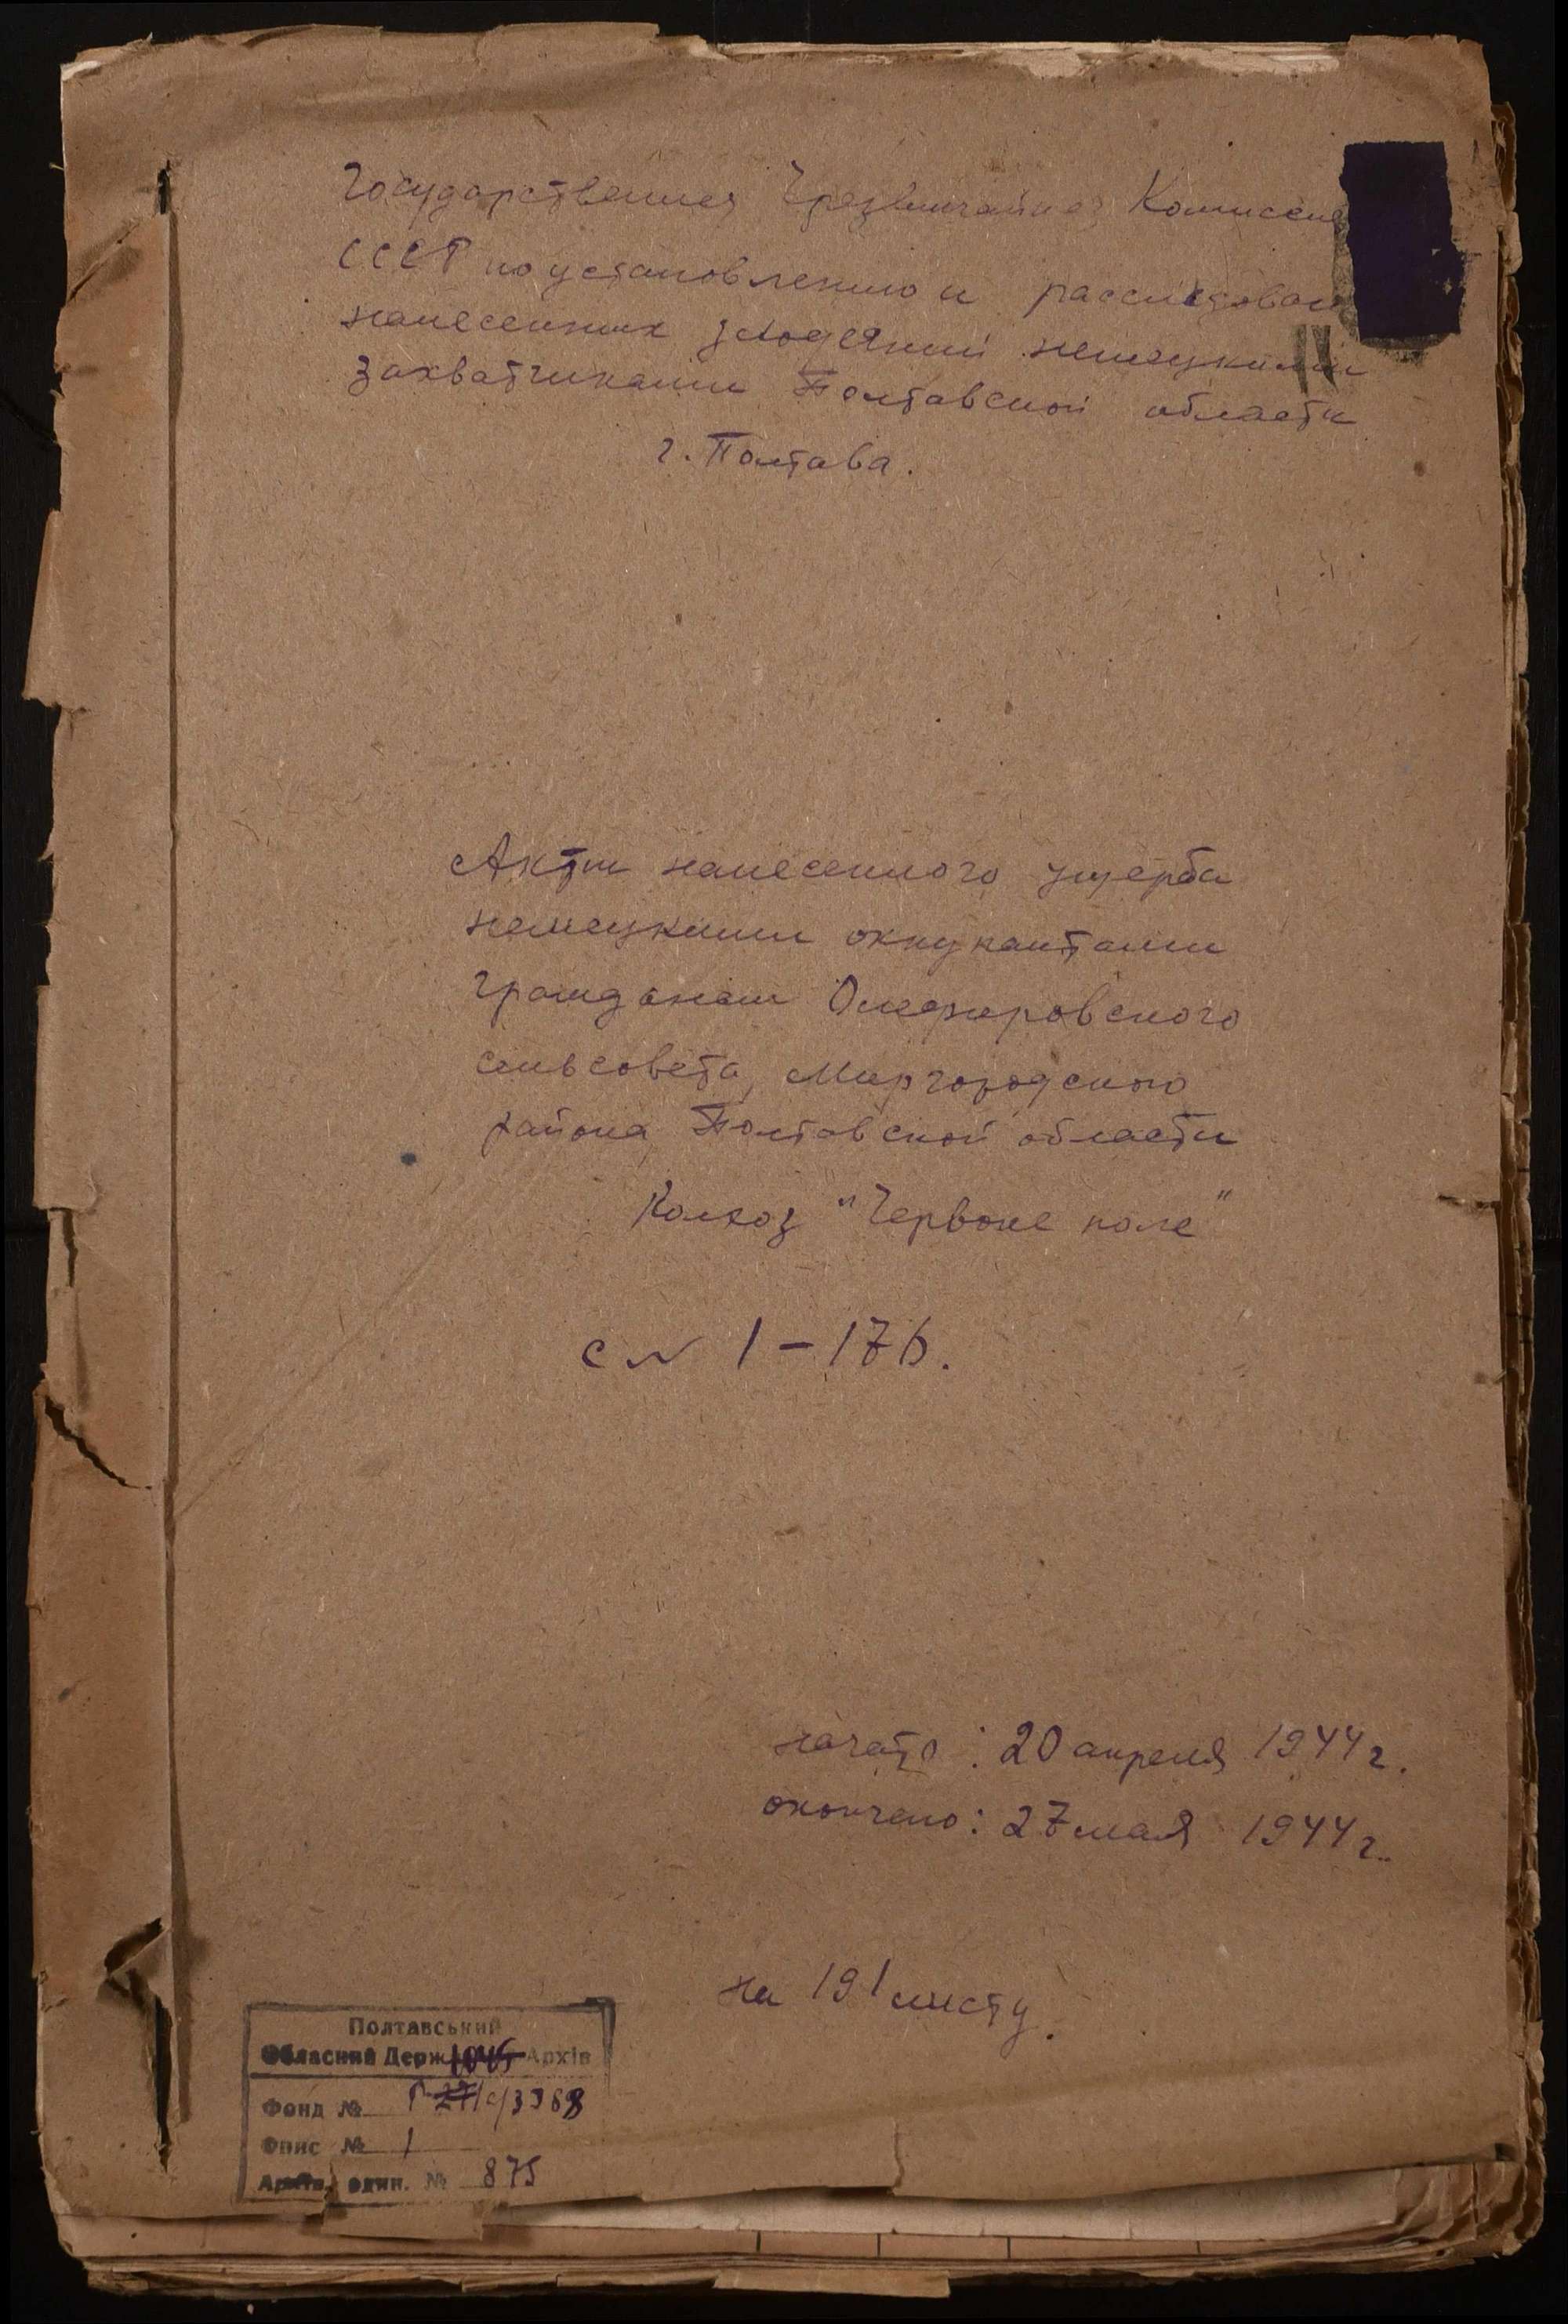 Государственная Чрезвычайная Комиссия
СССР по установлению и расследован
нанесенных злодеяний немецкими
захватчиками Полтавской области
г. Полтава.
Акты нанесенного ущерба
немецкими оккупантами
гражданам Олефировского
сельсовета, Миргородского
района, Полтавской области
Колхоз "Червоне поле"
с № 1-176.
начато: 20 апреля 1944 г.
окончено: 27 мая 1944 г.
на 191 листу.
Полтавський
Обласний Держ Архів
Фонд № 3388
Опис № 1
Архів. один. № 875